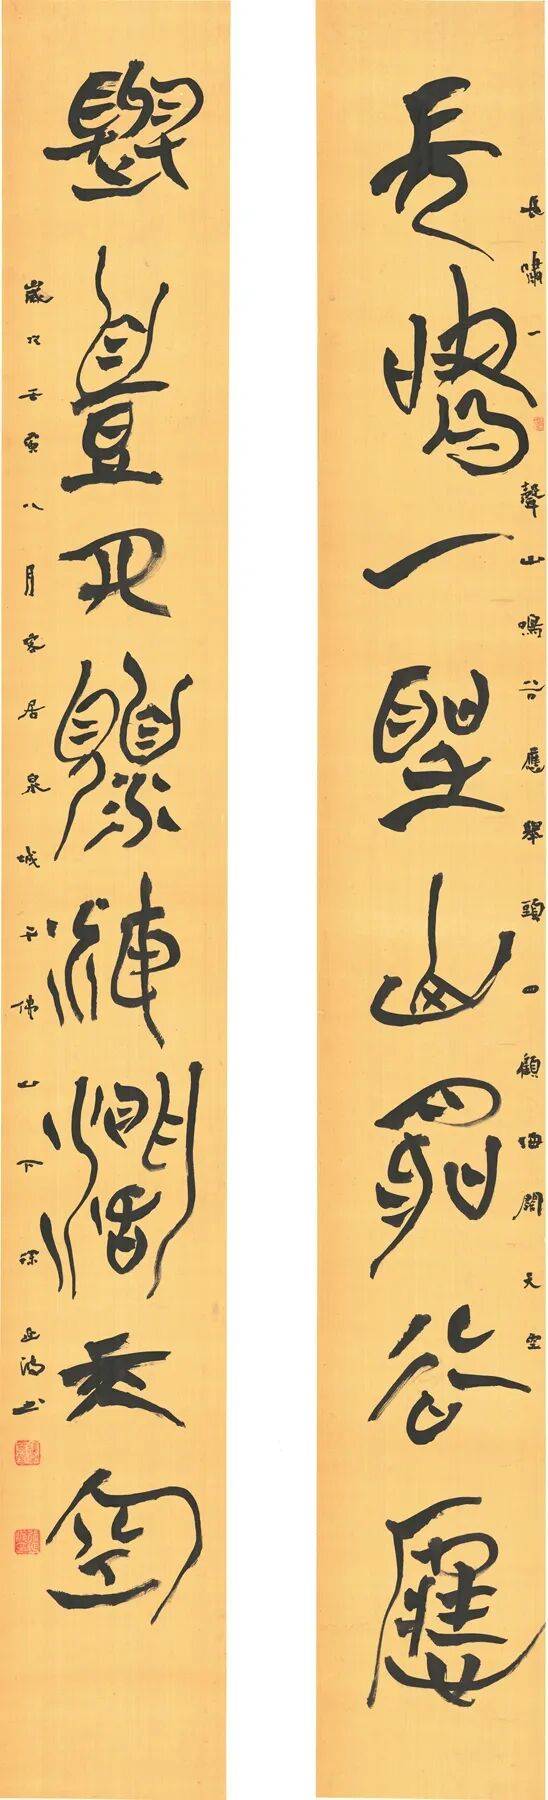 長嘯一聲山鳴谷應舉頭四顧海闊天空
長嘯一聲山鳴谷應
舉頭四顧海闊天空
歲次壬寅八月客居泉城千佛山下